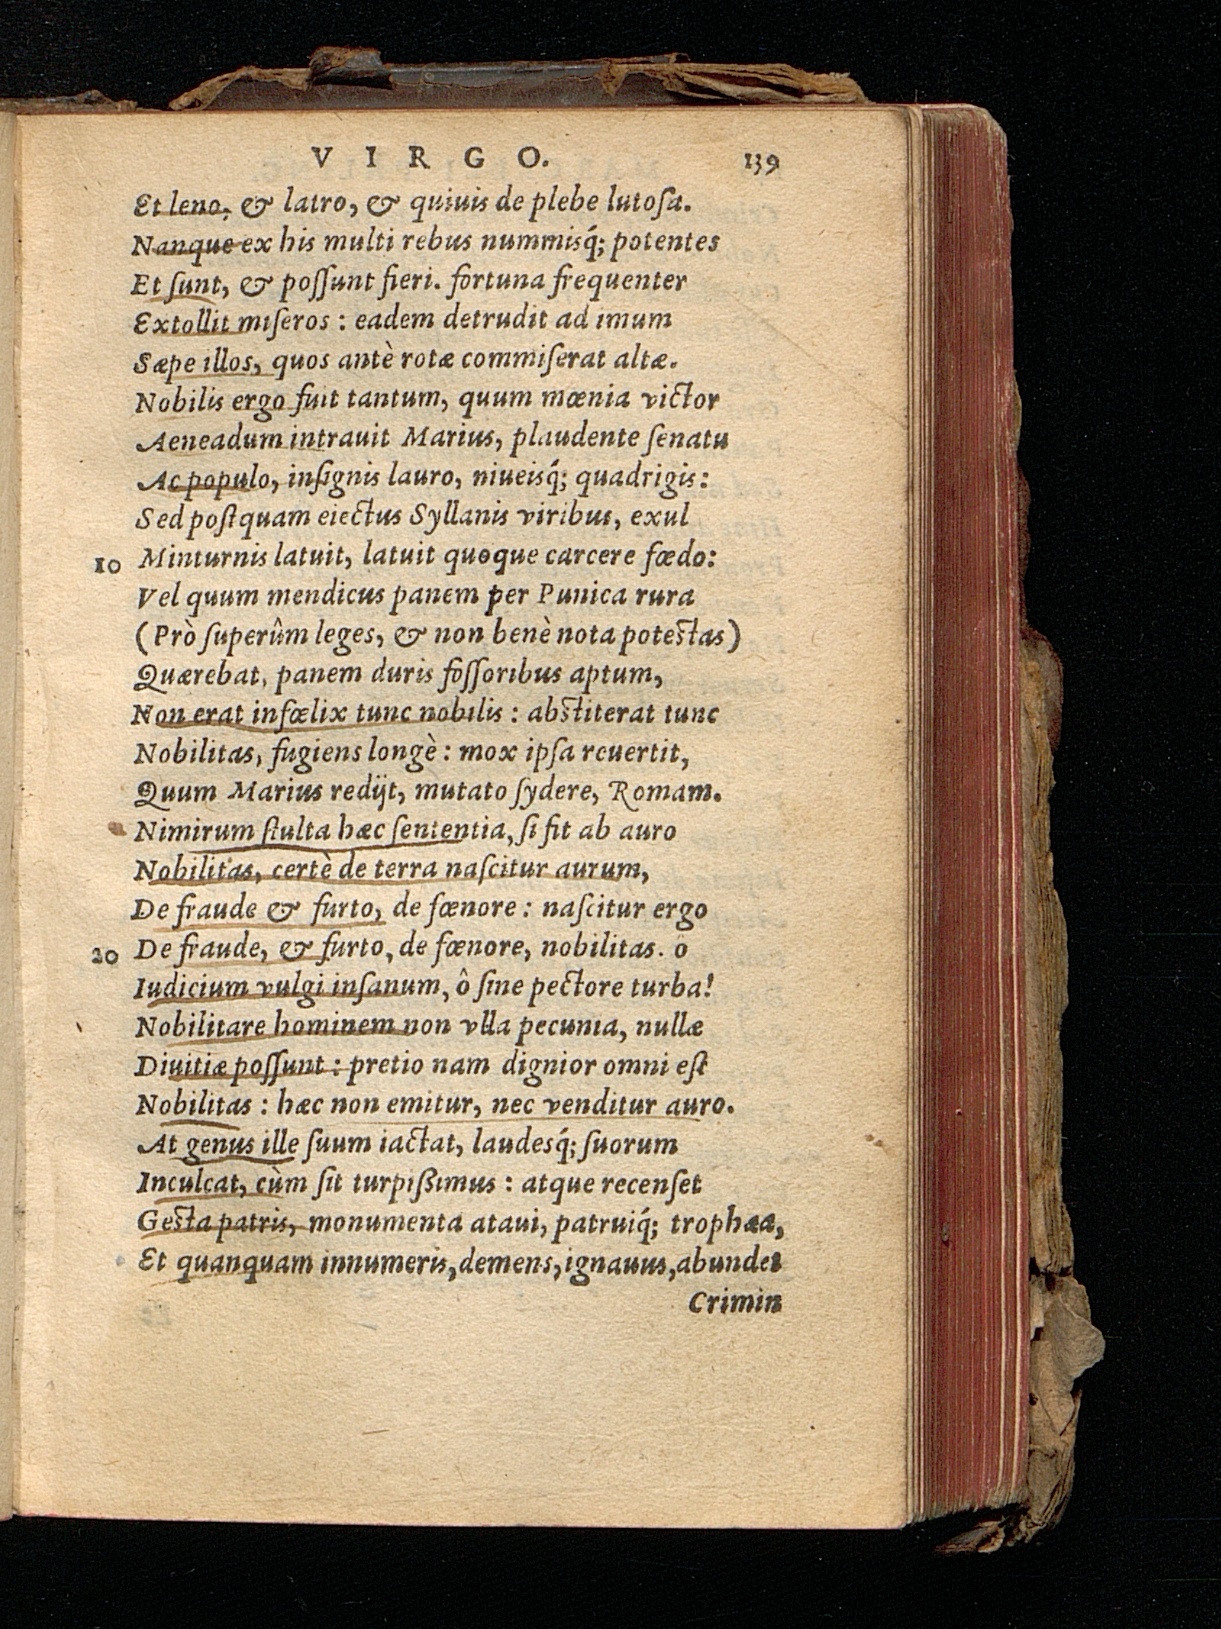 VIRGO. 139
Et leno, & latro, & quiuis de plebe lutoſa.
Nanque ex his multi rebus nummisq́; potentes
Et ſunt, & poſſunt fieri. fortuna frequenter
Extollit miſeros : eadem detrudit ad imum
Sæpe illos, quos antè rotæ commiſerat altæ.
Nobilis ergo fuit tantum, quum mœnia victor
Aeneadum intrauit Marius, plaudente ſenatu
Ac populo, inſignis lauro, niueisq́; quadrigis:
Sed poſtquam eiectus Syllanis viribus, exul
10 Minturnis latuit, latuit quoque carcere fœdo:
Vel quum mendicus panem per Punica rura
(Prò ſuperûm leges, & non benè nota poteſtas)
Quærebat, panem duris foſſoribus aptum,
Non erat infœlix tunc nobilis : abſtiterat tunc
Nobilitas, fugiens longè : mox ipſa reuertit,
Quum Marius redijt, mutato ſydere, Romam.
Nimirum ſtulta hæc ſententia, ſi fit ab auro
Nobilitas, certè de terra naſcitur aurum,
De fraude & furto, de fœnore : naſcitur ergo
20 De fraude, & furto, de fœnore, nobilitas. ô
Iudicium vulgi inſanum, ô ſine pectore turba!
Nobilitare hominem non vlla pecunia, nullæ
Diuitiæ poſſunt : pretio nam dignior omni eſt
Nobilitas : hæc non emitur, nec venditur auro.
At genus ille ſuum iactat, laudesq́; ſuorum
Inculcat, cùm ſit turpißimus : atque recenſet
Geſta patris, monumenta ataui, patruiq́; trophæa,
Et quanquam innumeris, demens, ignauus, abundet
Crimin